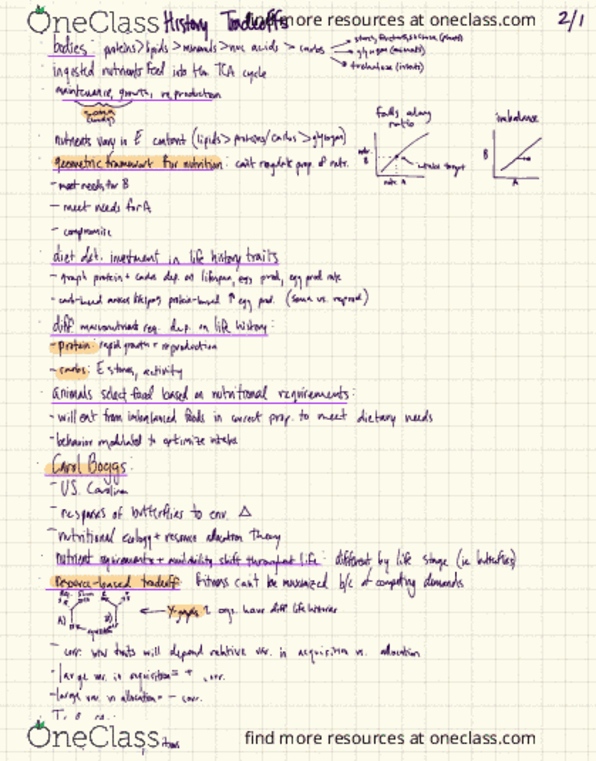 OneClass
History Tradeoffs
find more resources at oneclass.com
2/1
bodies: proteins > lipids > minerals > nuc acids > carbs
glycogen (animals)
trehalose (insects)
ingested nutrients feed into the TCA cycle
maintenance, growth, reproduction
soma
(body)
falls along
ratio
imbalance
nutrients vary in E content (lipids > proteins/carbs > glycogen)
B
intake target
A
B
A
geometric framework for nutrition: can't regulate prop. of nutr.
- meet needs for B
- meet needs for A
- compromise
diet det. investment in life history traits
- graph protein + carbs dep. on lifespan, egg prod, egg prod rate
- carb-based lifespan, protein-based ↑ egg prod. (soma vs. reprod)
diff. macronutrient req. dep. on life history:
- protein: rapid growth + reproduction
- carbs: E stores, activity
animals select food based on nutritional requirements:
- will eat from imbalanced foods in correct prop. to meet dietary needs
- behavior modulated to optimize intake
Carol Boggs:
- U S. Carolina
- responses of butterflies to env. Δ
- nutritional ecology + resource allocation theory
nutrient requirements + availability shift throughout life: different by life stage (ie butterflies)
resource-based tradeoff: fitness can't be maximized b/c of competing demands
A)
B)
orgs. have diff. life
- corr. btw traits will depend relative var. in acquisition vs. allocation
- large var. in acquisition = + corr.
- large var. in allocation = - corr.
OneClass
find more resources at oneclass.com